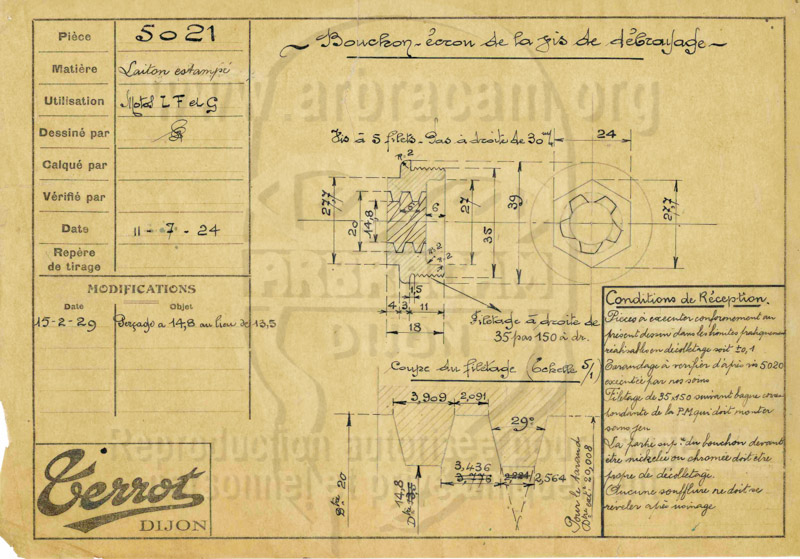 Pièce 5021
Matière Laiton estampé
Utilisation Motos L F et G
Dessiné par
Calqué par
Vérifié par
Date 11-7-24
Repère
de tirage
MODIFICATIONS
Date Objet
15-2-29 Perçage a 14,8 au lieu de 13,5
Terrot
DIJON
Bouchon-écrou de la vis de débrayage
Vis à 5 filets-Pas à droite de 30 m/m
24
2
27,7
20
14,8
5
6
27
35
39
27,7
2
2
1,5
4
3
11
18
Filetage à droite de
35 pas 150 à dr.
Coupe du filetage (echelle 5/1)
3,909
2,091
29°
Dtre 20
14,8
3,436
3,776
2,224
2,564
Pour le taraud
Dtre ext. 20,008
Conditions de Réception.
Pièces à executer conformement au
présent dessin dans les limites pratiquement
réalisables en décolletage soit ±0,1
Taraudage à verifier d'après vis 5020
executée par nos soins
Filetage de 35x150 suivant bague corres
pondante de la P.M qui doit monter
sans jeu
La partie supre du bouchon devant
être nickelée ou chromée doit etre
propre de décolletage.
Aucune soufflure ne doit se
révéler après usinage
www.arbracam.org
ARBRACAM